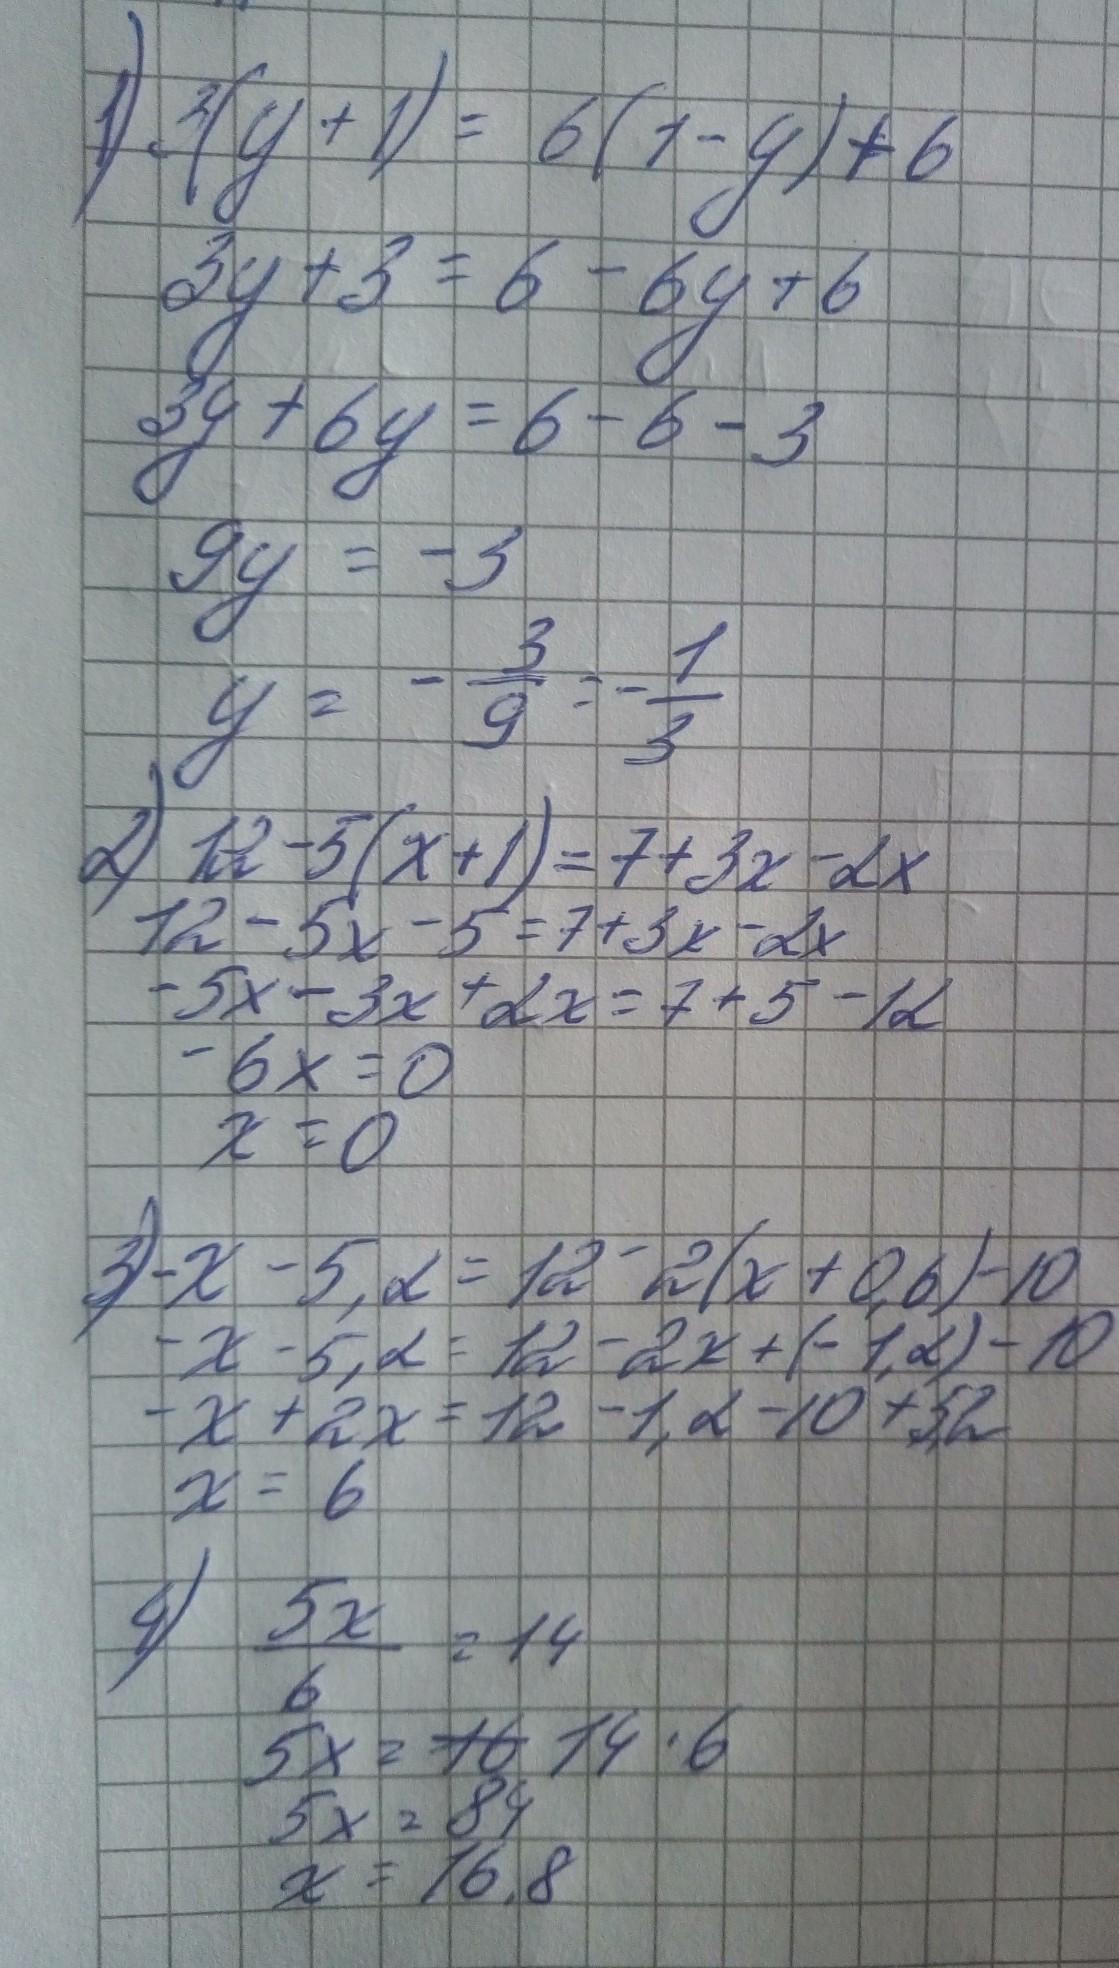 1) 3(y+1) = 6(1-y)+6
3y+3 = 6 - 6y+6
3y + 6y = 6 - 6 - 3
9y = -3
y = - 3/9 = - 1/3
2) 12-5(x+1)=7+3x-2x
12-5x-5=7+3x-2x
-5x-3x+2x=7+5-12
-6x=0
x=0
3) -x-5,2=12-2(x+0,6)-10
-x-5,2=12-2x+(-1,2)-10
-x+2x=12-1,2-10+5,2
x = 6
4) 5x/6 = 14
5x = 16 14·6
5x = 84
x = 16,8